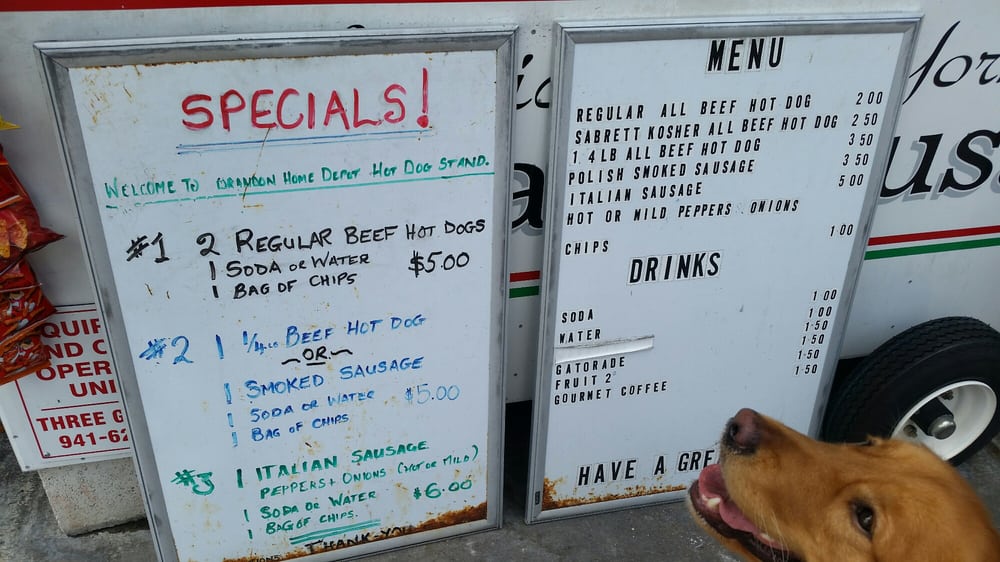 SPECIALS!
WELCOME TO BRANDON HOME DEPOT HOT DOG STAND.
#1 2 REGULAR BEEF HOT DOGS
1 SODA OR WATER $5.00
1 BAG OF CHIPS
#2 1 1/4 LB BEEF HOT DOG
~OR~
1 SMOKED SAUSAGE
1 SODA OR WATER $5.00
1 BAG OF CHIPS
#3 1 ITALIAN SAUSAGE
PEPPERS + ONIONS (HOT OR MILD)
1 SODA OR WATER $6.00
1 BAG OF CHIPS.
THANK-YOU
MENU
REGULAR ALL BEEF HOT DOG 2 00
SABRETT KOSHER ALL BEEF HOT DOG 2 50
1 4LB ALL BEEF HOT DOG 3 50
POLISH SMOKED SAUSAGE 3 50
ITALIAN SAUSAGE 5 00
HOT OR MILD PEPPERS ONIONS
CHIPS 1 00
DRINKS
SODA 1 00
WATER 1 00
1 50
GATORADE 1 50
FRUIT 2 1 50
GOURMET COFFEE 1 50
HAVE A GRE
for
us
QUIP
ND C
OPER
UNI
THREE G
941-62